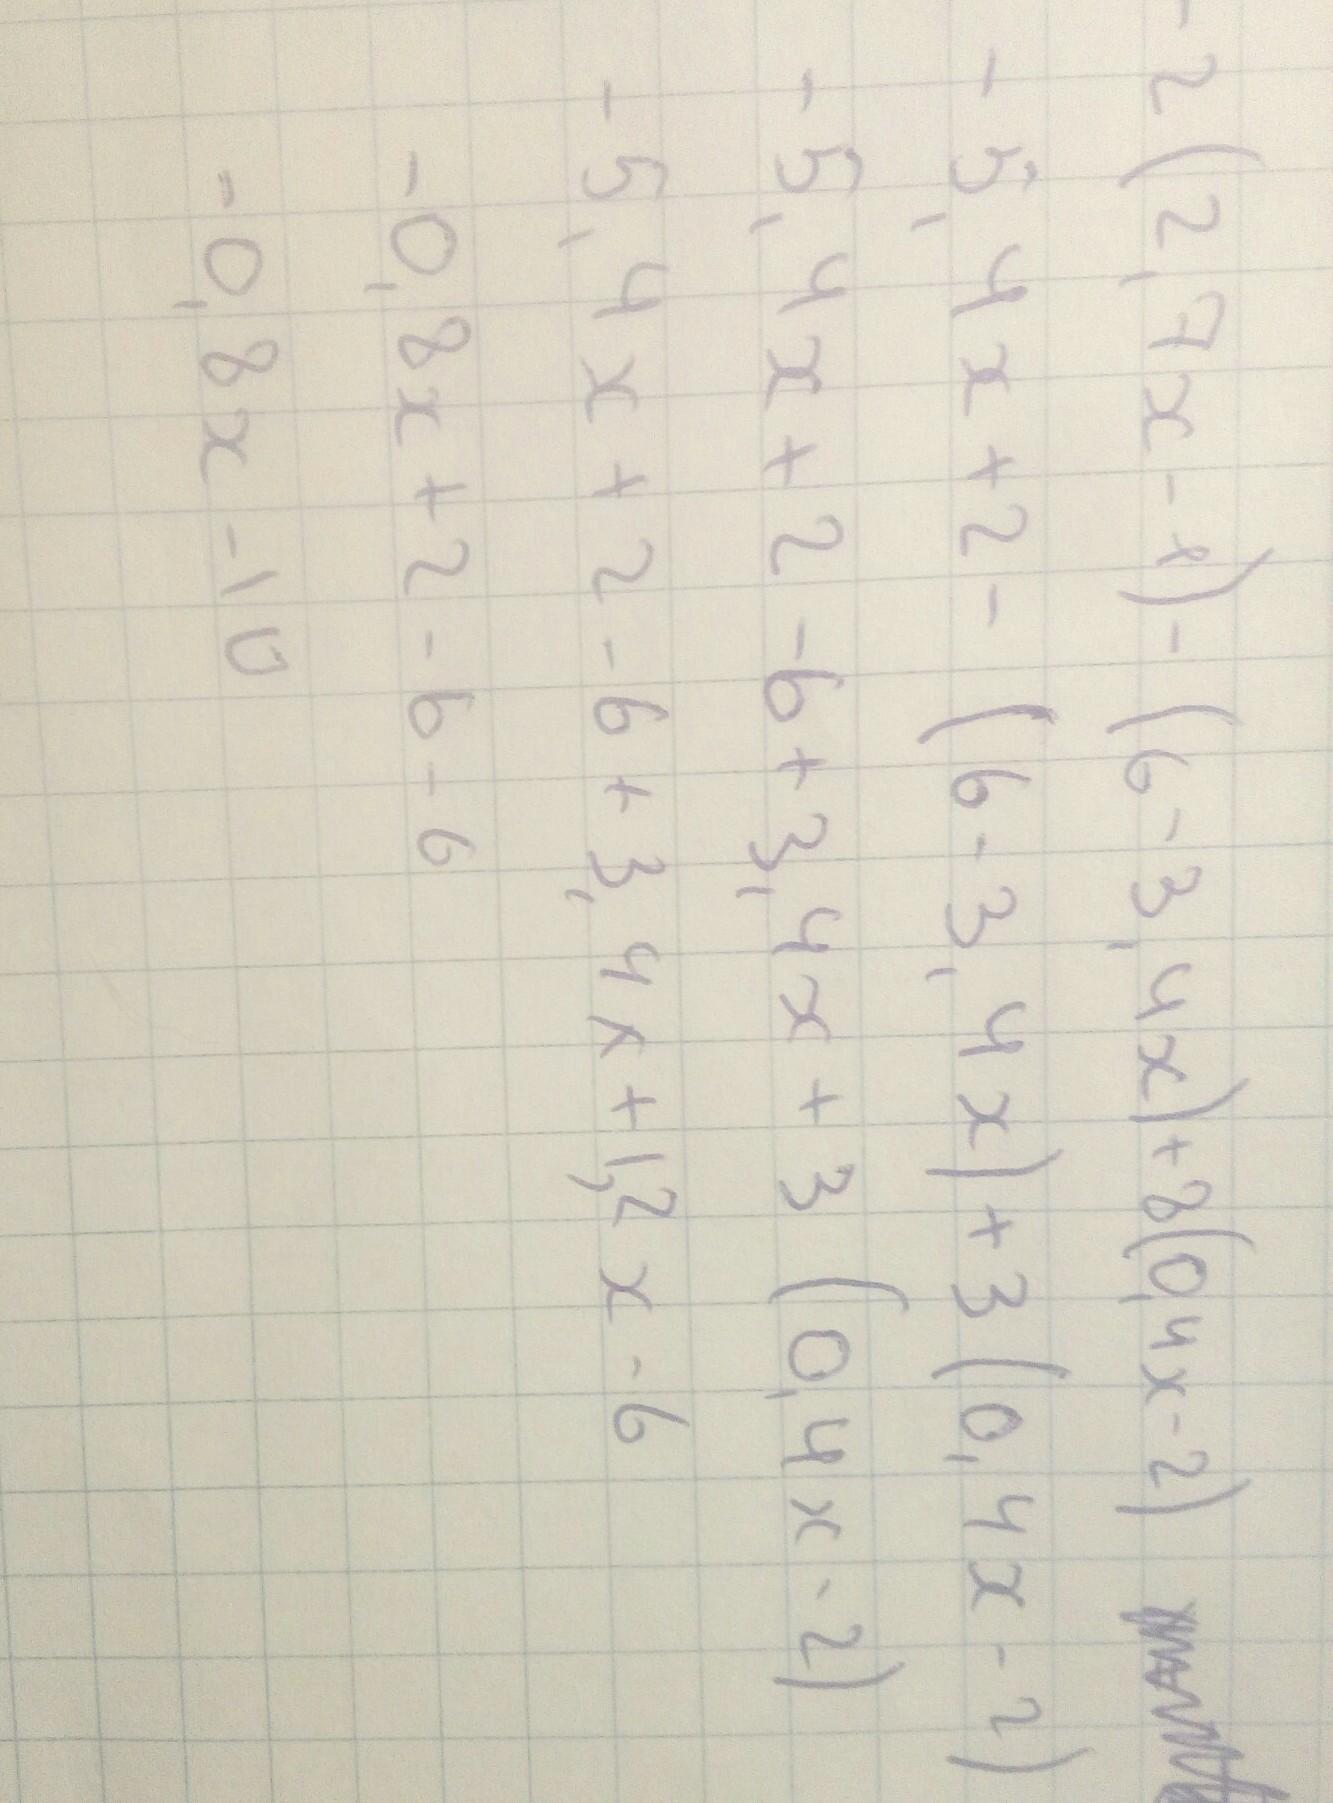 -2(2,7x-1)-(6-3,4x)+8(0,4x-2)
-5,4x+2-(6-3,4x)+3(0,4x-2)
-5,4x+2-6+3,4x+3(0,4x-2)
-5,4x+2-6+3,4x+1,2x-6
-0,8x+2-6-6
-0,8x-10